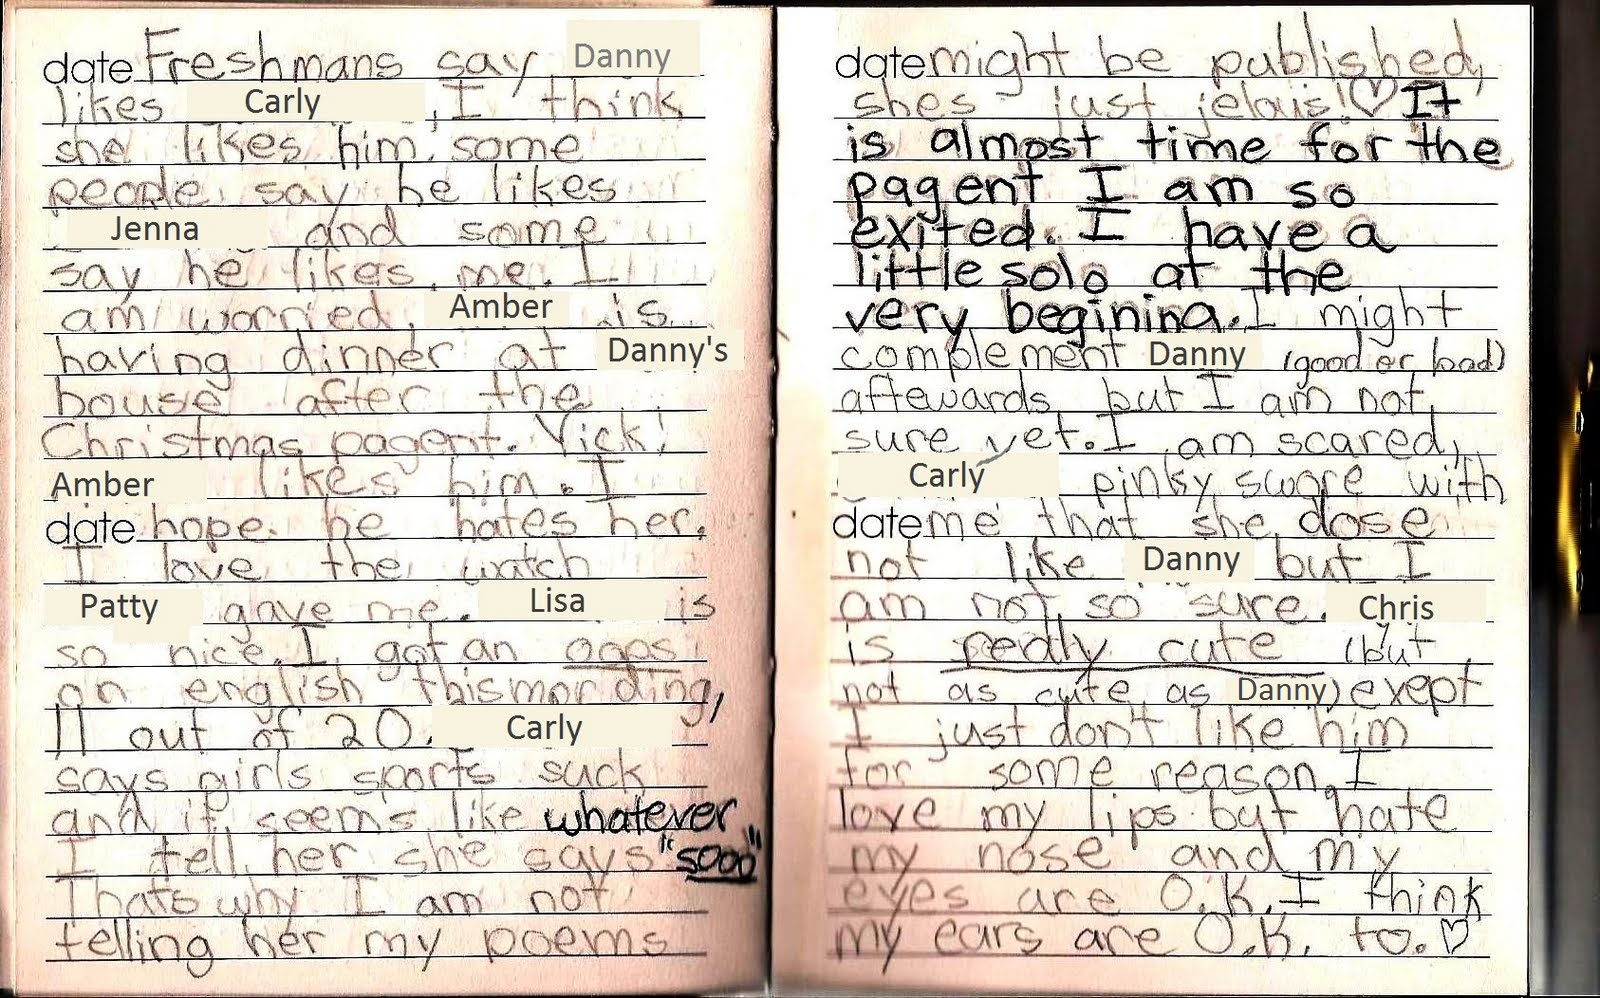 date Freshmans say Danny
likes Carly, I think
she likes him, some
people say he likes
Jenna and some
say he likes me. I
am worried, Amber is
having dinner at Danny's
house after the
Christmas pagent. Yick!
Amber likes him. I
date hope he hates her.
I love the watch
Patty gave me. Lisa is
so nice. I got an oops
on english this mording,
11 out of 20. Carly
says girls sports suck
and it seems like whatever
I tell her she says "sooo"
Thats why I am not
telling her my poems
date might be published,
shes just jelous! ♡ It
is almost time for the
pagent I am so
exited. I have a
little solo at the
very begining. I might
complement Danny (good or bad)
aftewards, but I am not
sure yet. I am scared,
Carly pinky swore with
date me that she dose
not like Danny but I
am not so sure. Chris
is really cute (but
not as cute as Danny) exept
I just don't like him
for some reason. I
love my lips but hate
my nose and my
eyes are O.K. I think
my ears are O.K. to. ♡